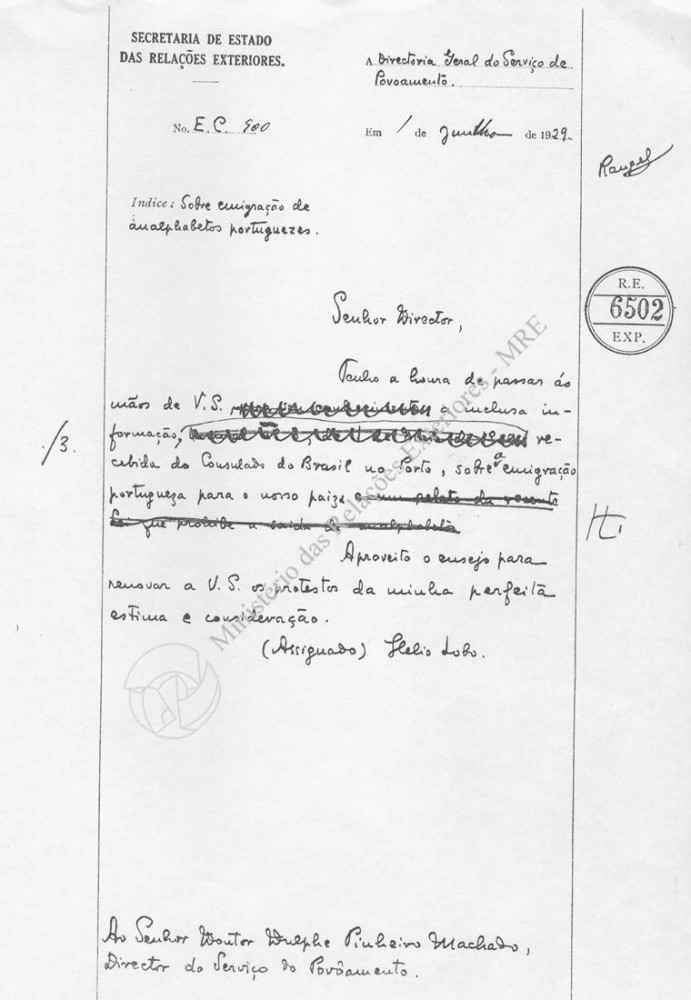 SECRETARIA DE ESTADO
DAS RELAÇÕES EXTERIORES.
A Directoria Geral do Serviço de
Povoamento.
No. E.C. 900
Em 1 de Junho de 1929.
Rangel
Indice: Sobre emigração de
analphabetos portuguezes.
R.E.
6502
EXP.
Senhor Director,
Tenho a honra de passar ás
mãos de V.S. a inclusa in-
formação, re-
./3.
cebida do Consulado do Brasil no Porto, sobre a emigração
portugueza para o nosso paiz e um relato da recente
lei que prohibe a saida de analphabetos
Aproveito o ensejo para
renovar a V.S. os protestos da minha perfeita
estima e consideração.
(Assignado) Helio Lobo.
Ministério das Relações Exteriores - MRE
Ao Senhor Doutor Dulphe Pinheiro Machado,
Director do Serviço do Povôamento.